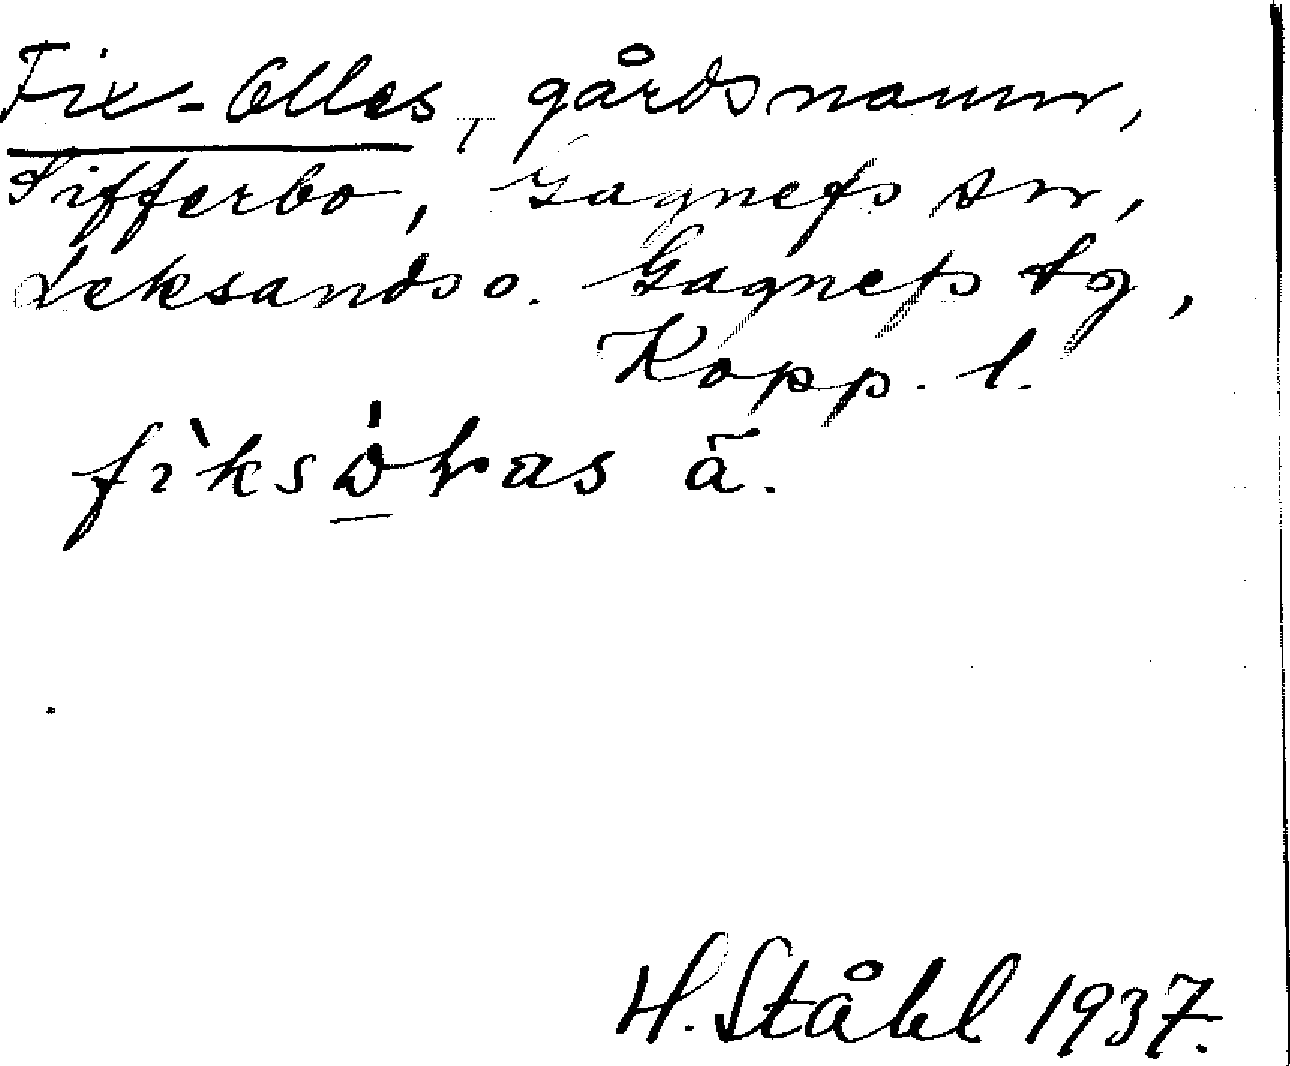 Fix-Olles, gårdsnamn,
Sifferbo, Gagnefs sn,
Leksands o. Gagnefs tg,
Kopp. l.
ā.
H. Ståhl 1937.